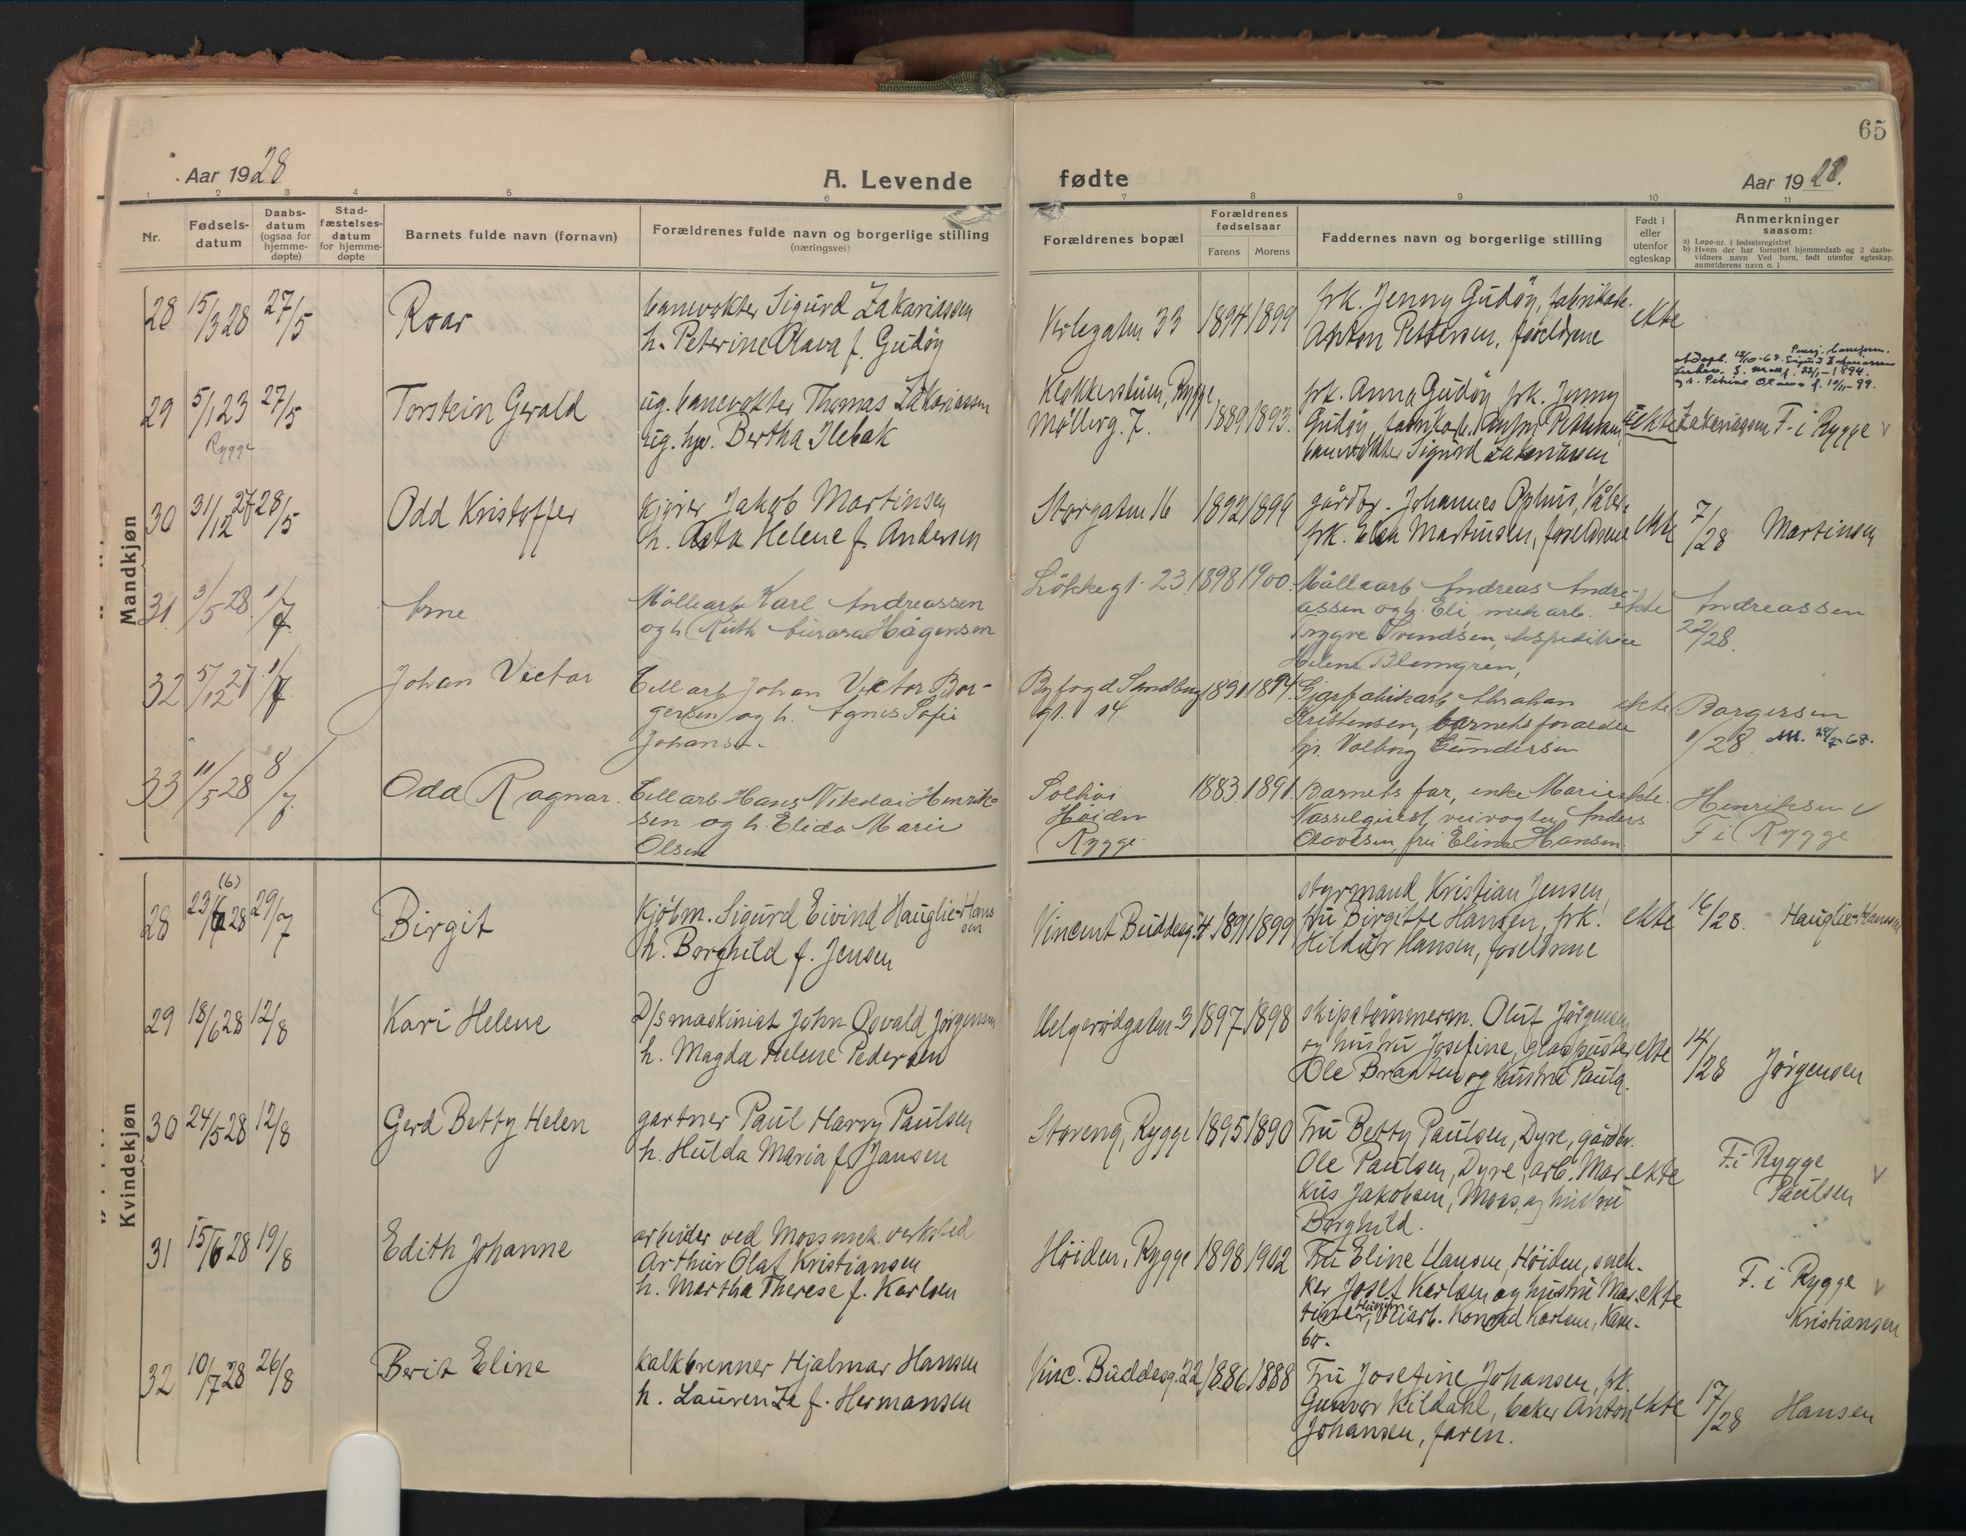 65
Aar 1928
A. Levende
fødte
Aar 1928.
1 2 3 4 5 6 7 8 9 10 11
Nr.
Fødsels-
datum
Daabs-
datum
(ogsaa for
hjemme-
døpte)
Stad-
fæstelses-
datum
for hjemme-
døpte
Barnets fulde navn (fornavn)
Forældrenes fulde navn og borgerlige stilling
(næringsvei)
Forældrenes bopæl
Forældrenes
fødselsaar
Farens Morens
Faddernes navn og borgerlige stilling
Født i
eller
utenfor
egteskap
Anmerkninger
saasom:
a) Løpe-nr. i fødselsregistret
b) Hvem der har forrettet hjemmedaab og 2 daabs-
vidners navn Ved barn, født utenfor egteskap,
anmelderens navn o. l
Mandkjøn
28 15/3 28 27/5 Roar
banevokter Sigurd Zakariassen
h. Peterine Olava f. Gudøy
33 1894 1899
frk. Jenny Gudøy, fabrikarb.
Anton Pettersen, foreldrene
ekte
29 5/1 23 27/5 Torstein Gerald
Rygge
ug. banevokter Thomas Zakariassen
ug. hp. Bertha Ilebak
Klokkerstuen, Rygge
Møllerg. 7. 1889 1893.
frk. Anna Gudøy, frk. Jenny
Gudøy, fabrikarb. Anton Pettersen
banevokter Sigurd Zakariassen
uekte
Zakariassen F. i Rygge
30 31/12 27 28/5 Odd Kristoffer
kjører Jakob Martinsen
h. Asta Helene f. Andersen
Storgaten 16 1892 1899
gårdbr. Johannes Ophus, Våler,
frk. Elen Martinsen, foreldrene
ekte
7/28 Martinsen
31. 3/5 28. 1/7. Arne
Møllearb Karl Andreassen
og h Ruth Aurora Hågensen
Løkkegt. 23. 1898 1900.
Møllearb Andreas Andre-
assen og h. Eli, mek arb.
Trygve Svendsen, ekspeditrice
Helene Blomgren,
ekte
Andreassen
22/28.
32 5/12 27 1/7 Johan Victor
Cell arb Johan Victor Bor-
gersen og h. Agnes Sofie
Johans.
Byfogd Sandberg
gt. 14 1891 1894.
Gjærfabrikarb Abraham
Kristensen, barnets foreldre
hp. Valborg Gundersen
ekte
Borgersen
1/28. M. 28/2-68.
33 11/5 28 8/7. Odd Ragnar.
Cell arb Hans Nikolai Henrik-
sen og h. Elida Marie
Olsen
Solhøi
Høiden
Rygge. 1883 1891.
Barnets far, enke Marie
Nasselquist, veivogter Anders
Olavesen, fru Eline Hansen.
ekte.
Henriksen
F i Rygge
Kvindekjøn
(6)
28 23/6 28 29/7 Birgit
kjøbm. Sigurd Eivind Hauglie-Hans
sen
h. Borghild f. Jensen
Vincent Buddesg. 4 1891 1899
styrmand Kristian Jensen,
fru Birgitte Hansen, frk.
Hildur Hansen, foreldrene
ekte
16/28. Hauglie-Hansen
29 18/6 28 12/8 Kari Helene
D/s maskinist John Osvald Jørgensen
h. Magda Helene Pedersen
Helgerødgaten 3 1897 1898
skipstømmerm. Oluf Jørgensen
og hustru Josefine, glaspuster
Ole Braaten og hustru Paula.
ekte
14/28 Jørgensen
30 24/5 28 12/8 Gerd Betty Helen
gartner Paul Harry Paulsen
h. Hulda Maria f. Jansen
Storeng, Rygge 1895 1890
Fru Betty Paulsen, Dyre, gårdbr.
Ole Paulsen, Dyre, arb. Mar-
kus Jakobsen, Moss, og hustru
Borghild.
ekte
F. i Rygge
Paulsen
31 15/6 28 19/8 Edith Johanne
arbeider ved Moss mek. verksted
Arthur Olaf Kristiansen
h. Martha Therese f. Karlsen
Høiden, Rygge 1898 1902
Fru Eline Hansen, Høiden, snek-
ker Josef Karlsen og hustru Mar-
veiarb. Konrad Karlsen, Kam-
bo.
ekte
F. i Rygge
Kristiansen
32 10/7 28 26/8 Berit Eline
kalkbrenner Hjalmar Hansen
h. Laurenze f. Hermansen
Vinc. Buddesg. 22, 1886 1888
Fru Josefine Johansen, frk.
Gunvor Kildahl, baker Anton
Johansen, faren.
ekte
17/28 Hansen